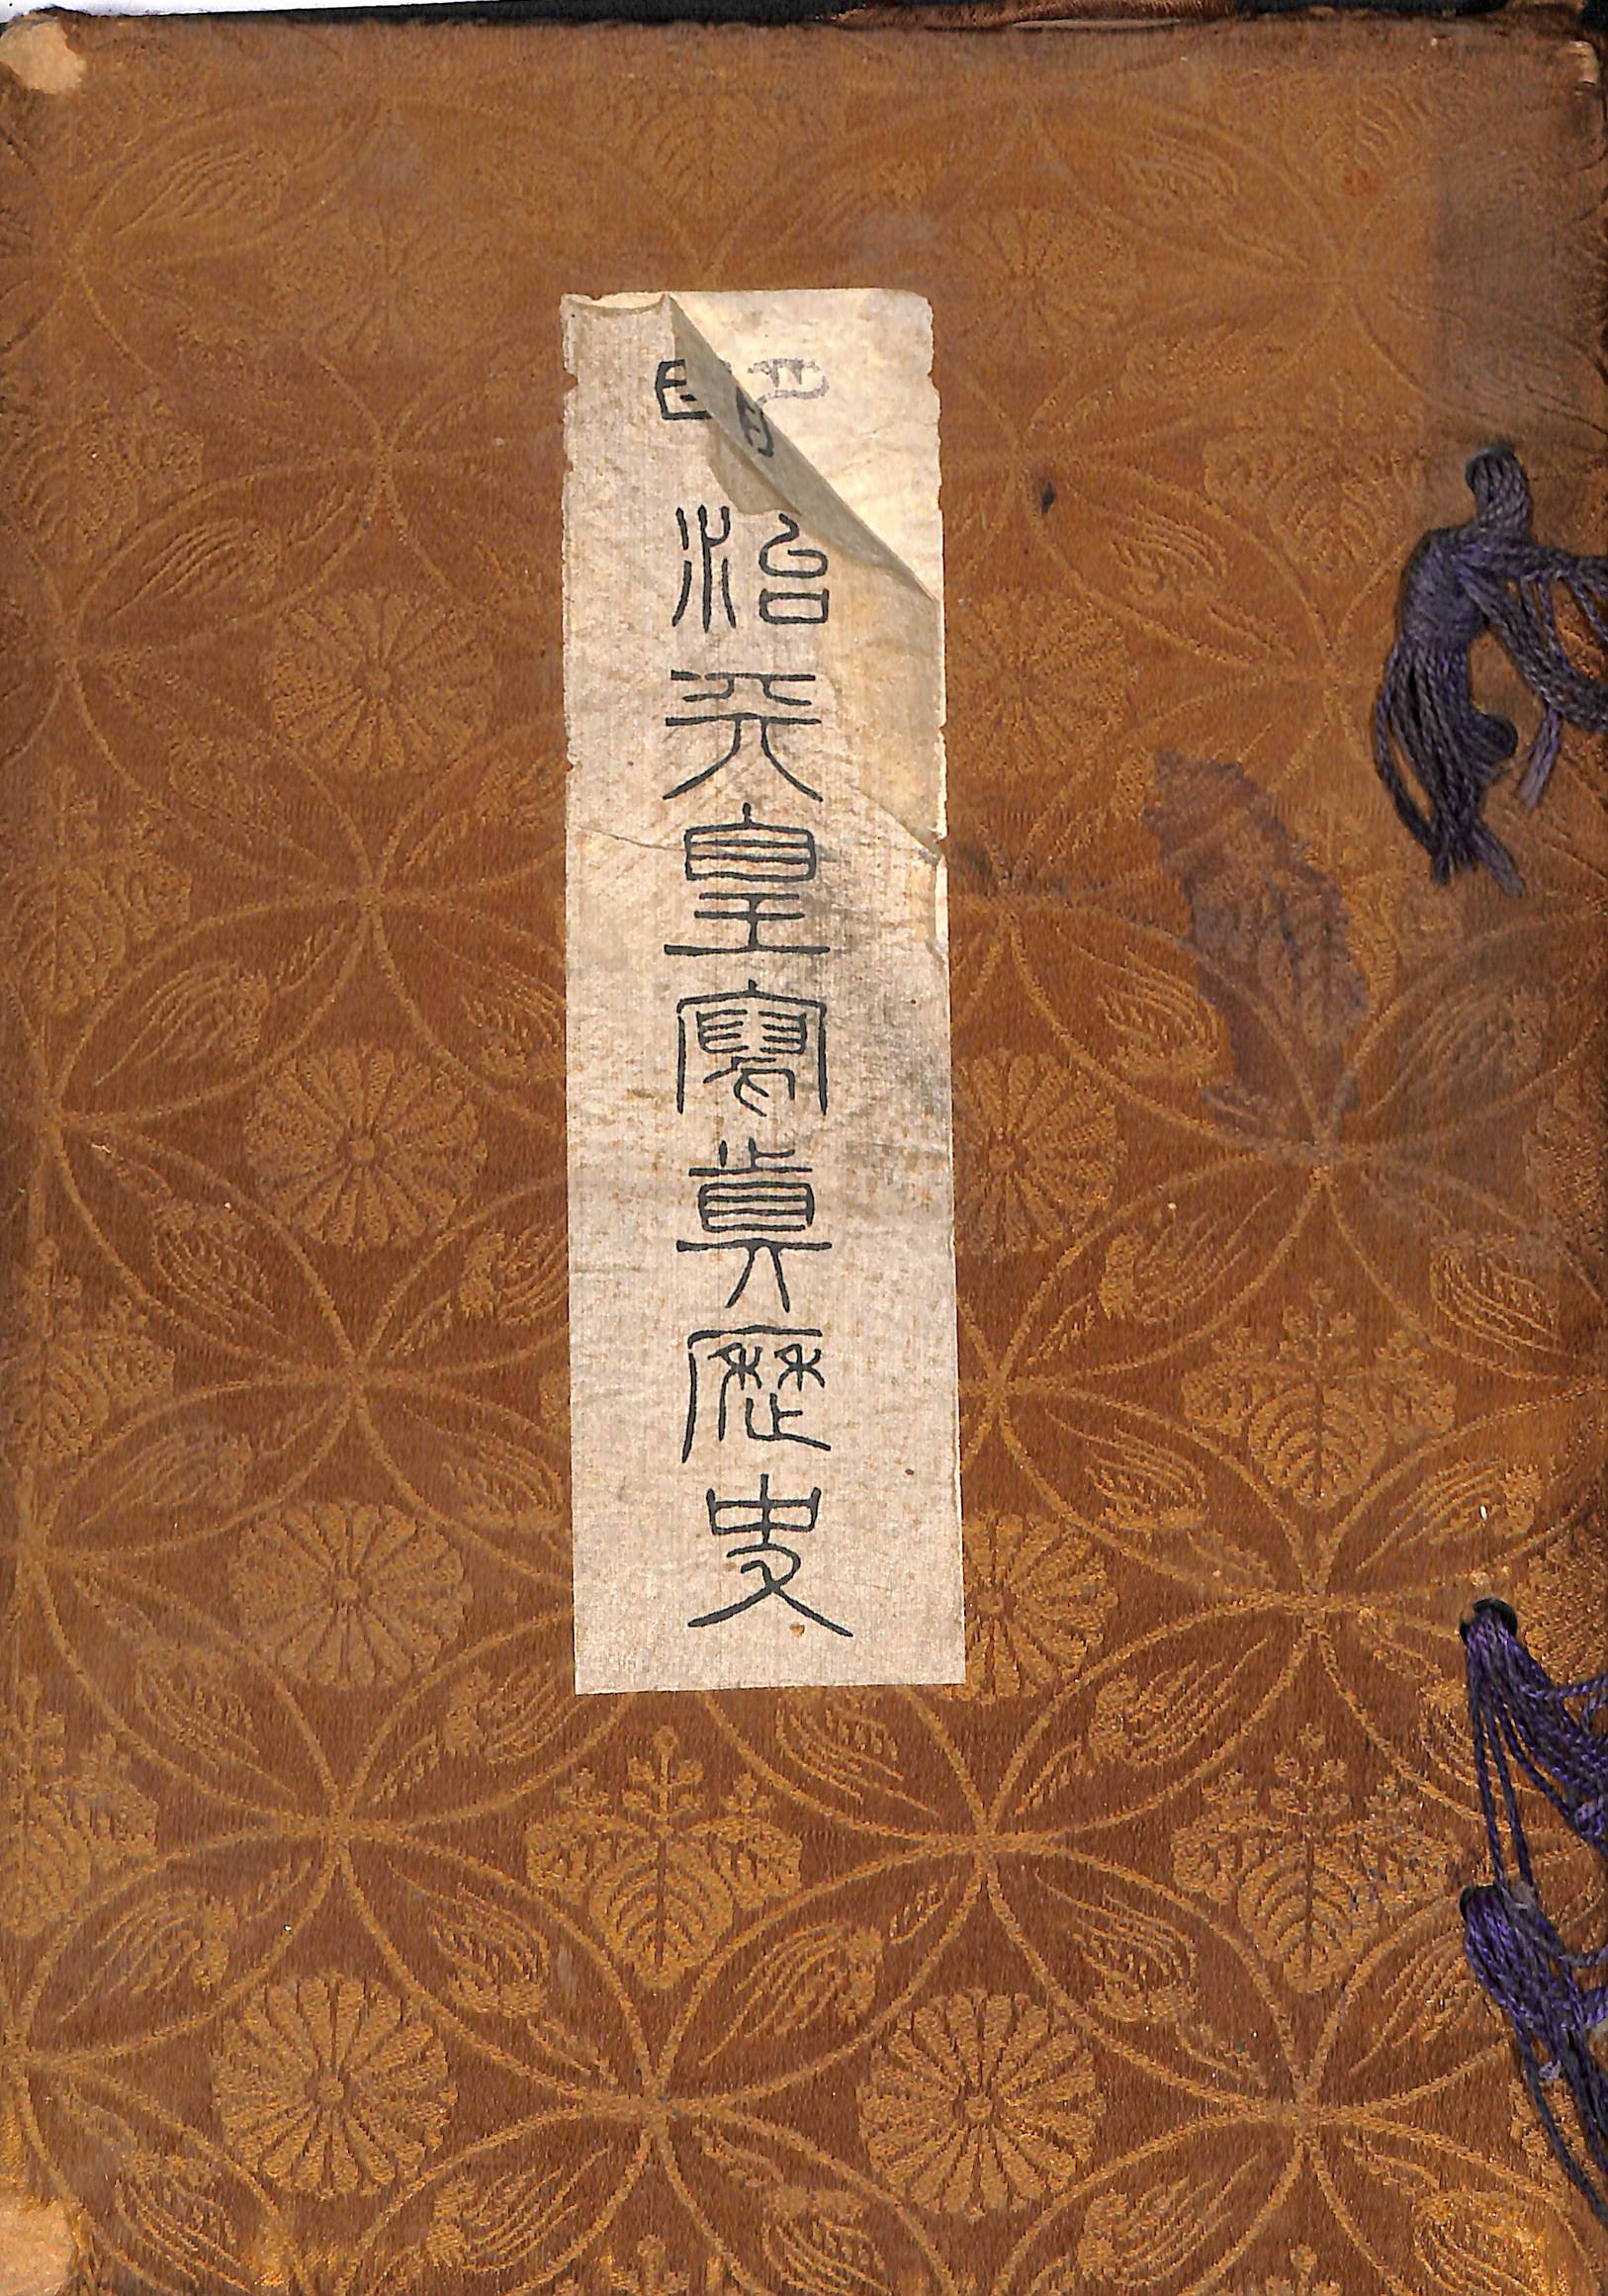 明治天皇寫眞歴史